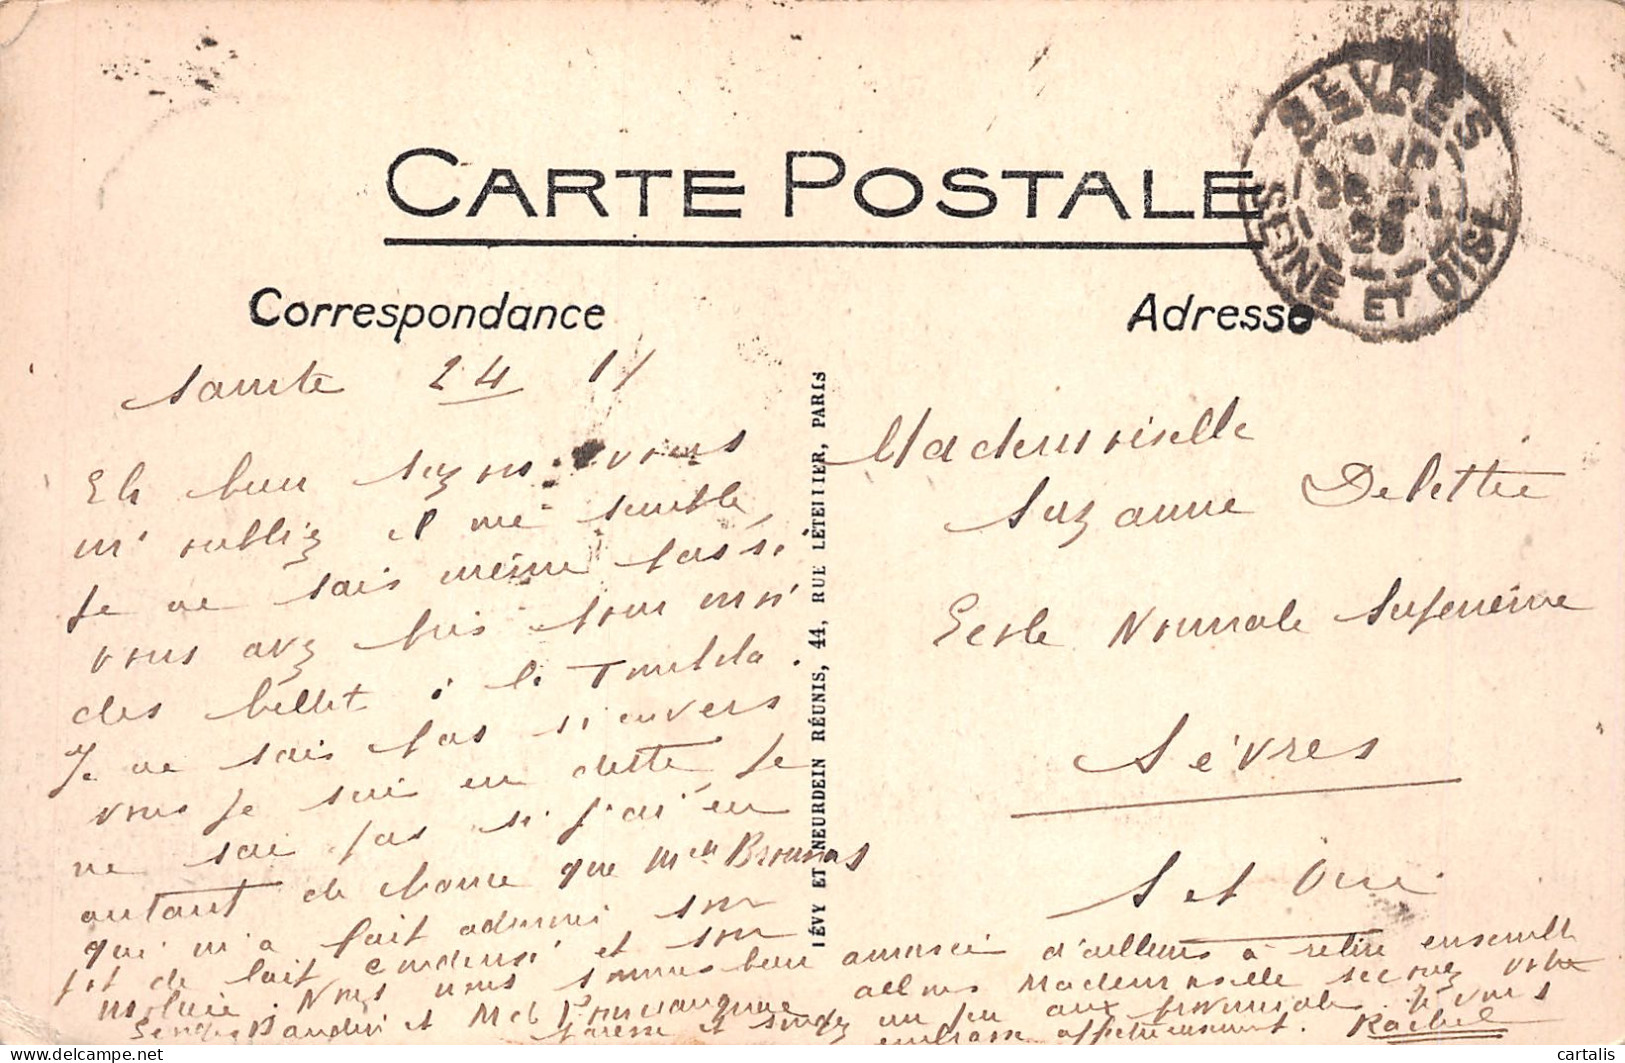 CARTE POSTALE
SÈVRES
SEINE ET OISE
Correspondance
Adresse
24
Eh bien Suzon vous
m'oubliez il me semble,
Je ne sais même pas si
vous avez pris pour moi
des billets à la Tombola.
Je ne sais pas si envers
vous je suis en dette, je
ne sai pas si j'ai en
autant de chance que Melle
qui m'a fait admirer son
pot de lait condensé et son
Nous nous sommes bien amusée d'ailleurs à petite ensemble
et Mlle allons Mademoiselle secouez votre
paresse et songez un peu aux Je vous
embrasse affectueusement. Rachel
LÉVY ET NEURDEIN RÉUNIS, 44, RUE LETELLIER, PARIS
Mademoiselle
Suzanne
Ecole Normale Supérieure
Sèvres
S et Oise
cartalis